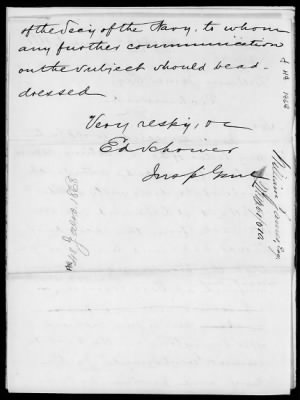 of the Secy of the Navy, to whom
any further communication
on the subject should be ad-
dressed
Very respy, &c
Ed Schriver
Insp Genl
William James, Esq.
1868